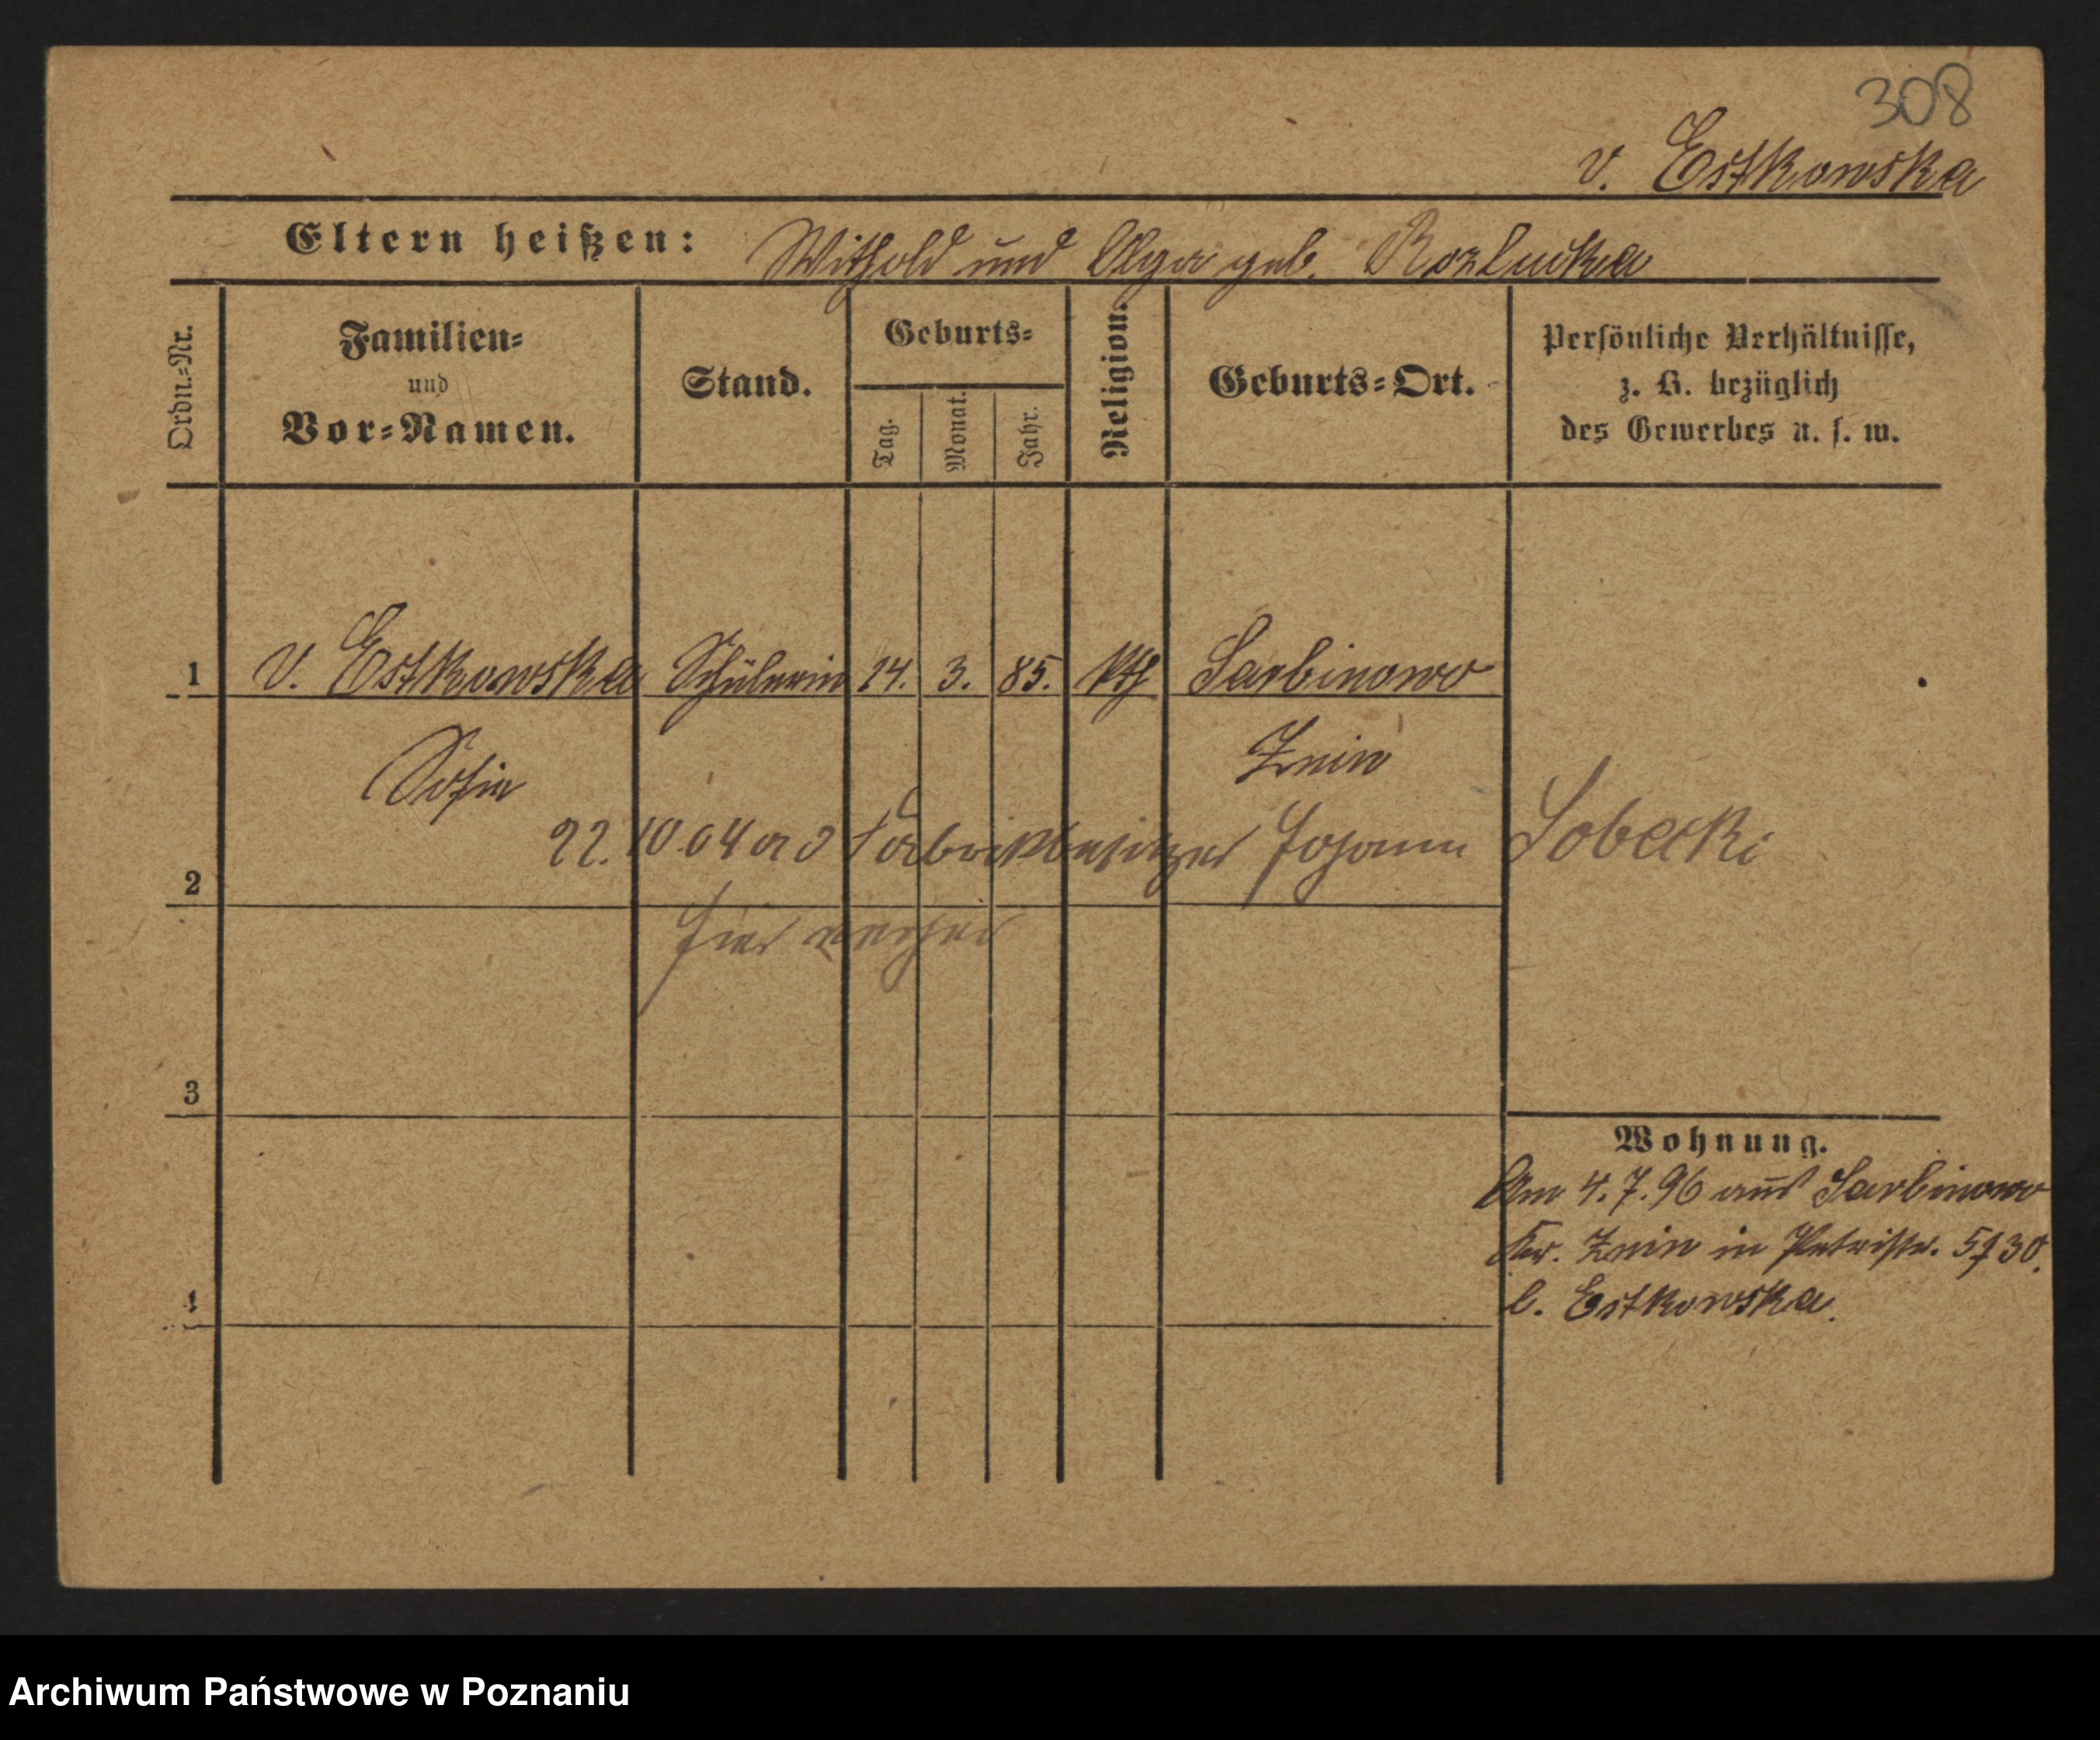 308
v. Estkowska
Eltern heißen: Withold und Olga geb. Rozlucka
Ordn.-Nr.
Familien-
und
Vor-Namen.
Stand.
Geburts-
Tag.
Monat.
Jahr.
Religion.
Geburts-Ort.
Persönliche Verhältnisse,
z. B. bezüglich
des Gewerbes u. s. w.
1 v. Estkowska Schülerin 14. 3. 85. kth Sarbinowo
Sofie Znin
22.10.04 a d Fabrikbesitzer Johann Sobecki
2
hier verheir
3
Wohnung.
Am 4.7.96 aus Sarbinowo
Kr. Znin in Petristr. 5
4
b. Estkowska.
Archiwum Państwowe w Poznaniu